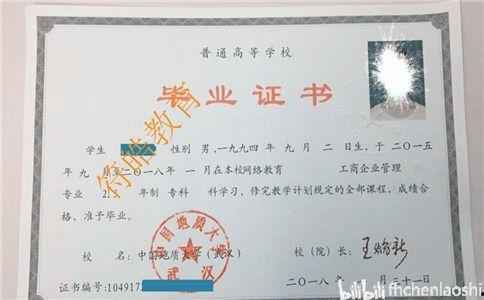 普通高等学校
毕业证书
学生 性别 男,一九九四年 九 月 二 日生,于 二〇一五
年 九 月至二〇一八年 一 月在本校网络教育 工商企业管理
专业 2. 年制 专科 科学习,修完教学计划规定的全部课程,成绩合
格,准予毕业。
校 名:中国地质大学(武汉) 校(院)长:
证书编号:104917 二〇一八年 月三十一日
符皓教育
中国地质大学
武汉
bilibili fhchenlaoshi